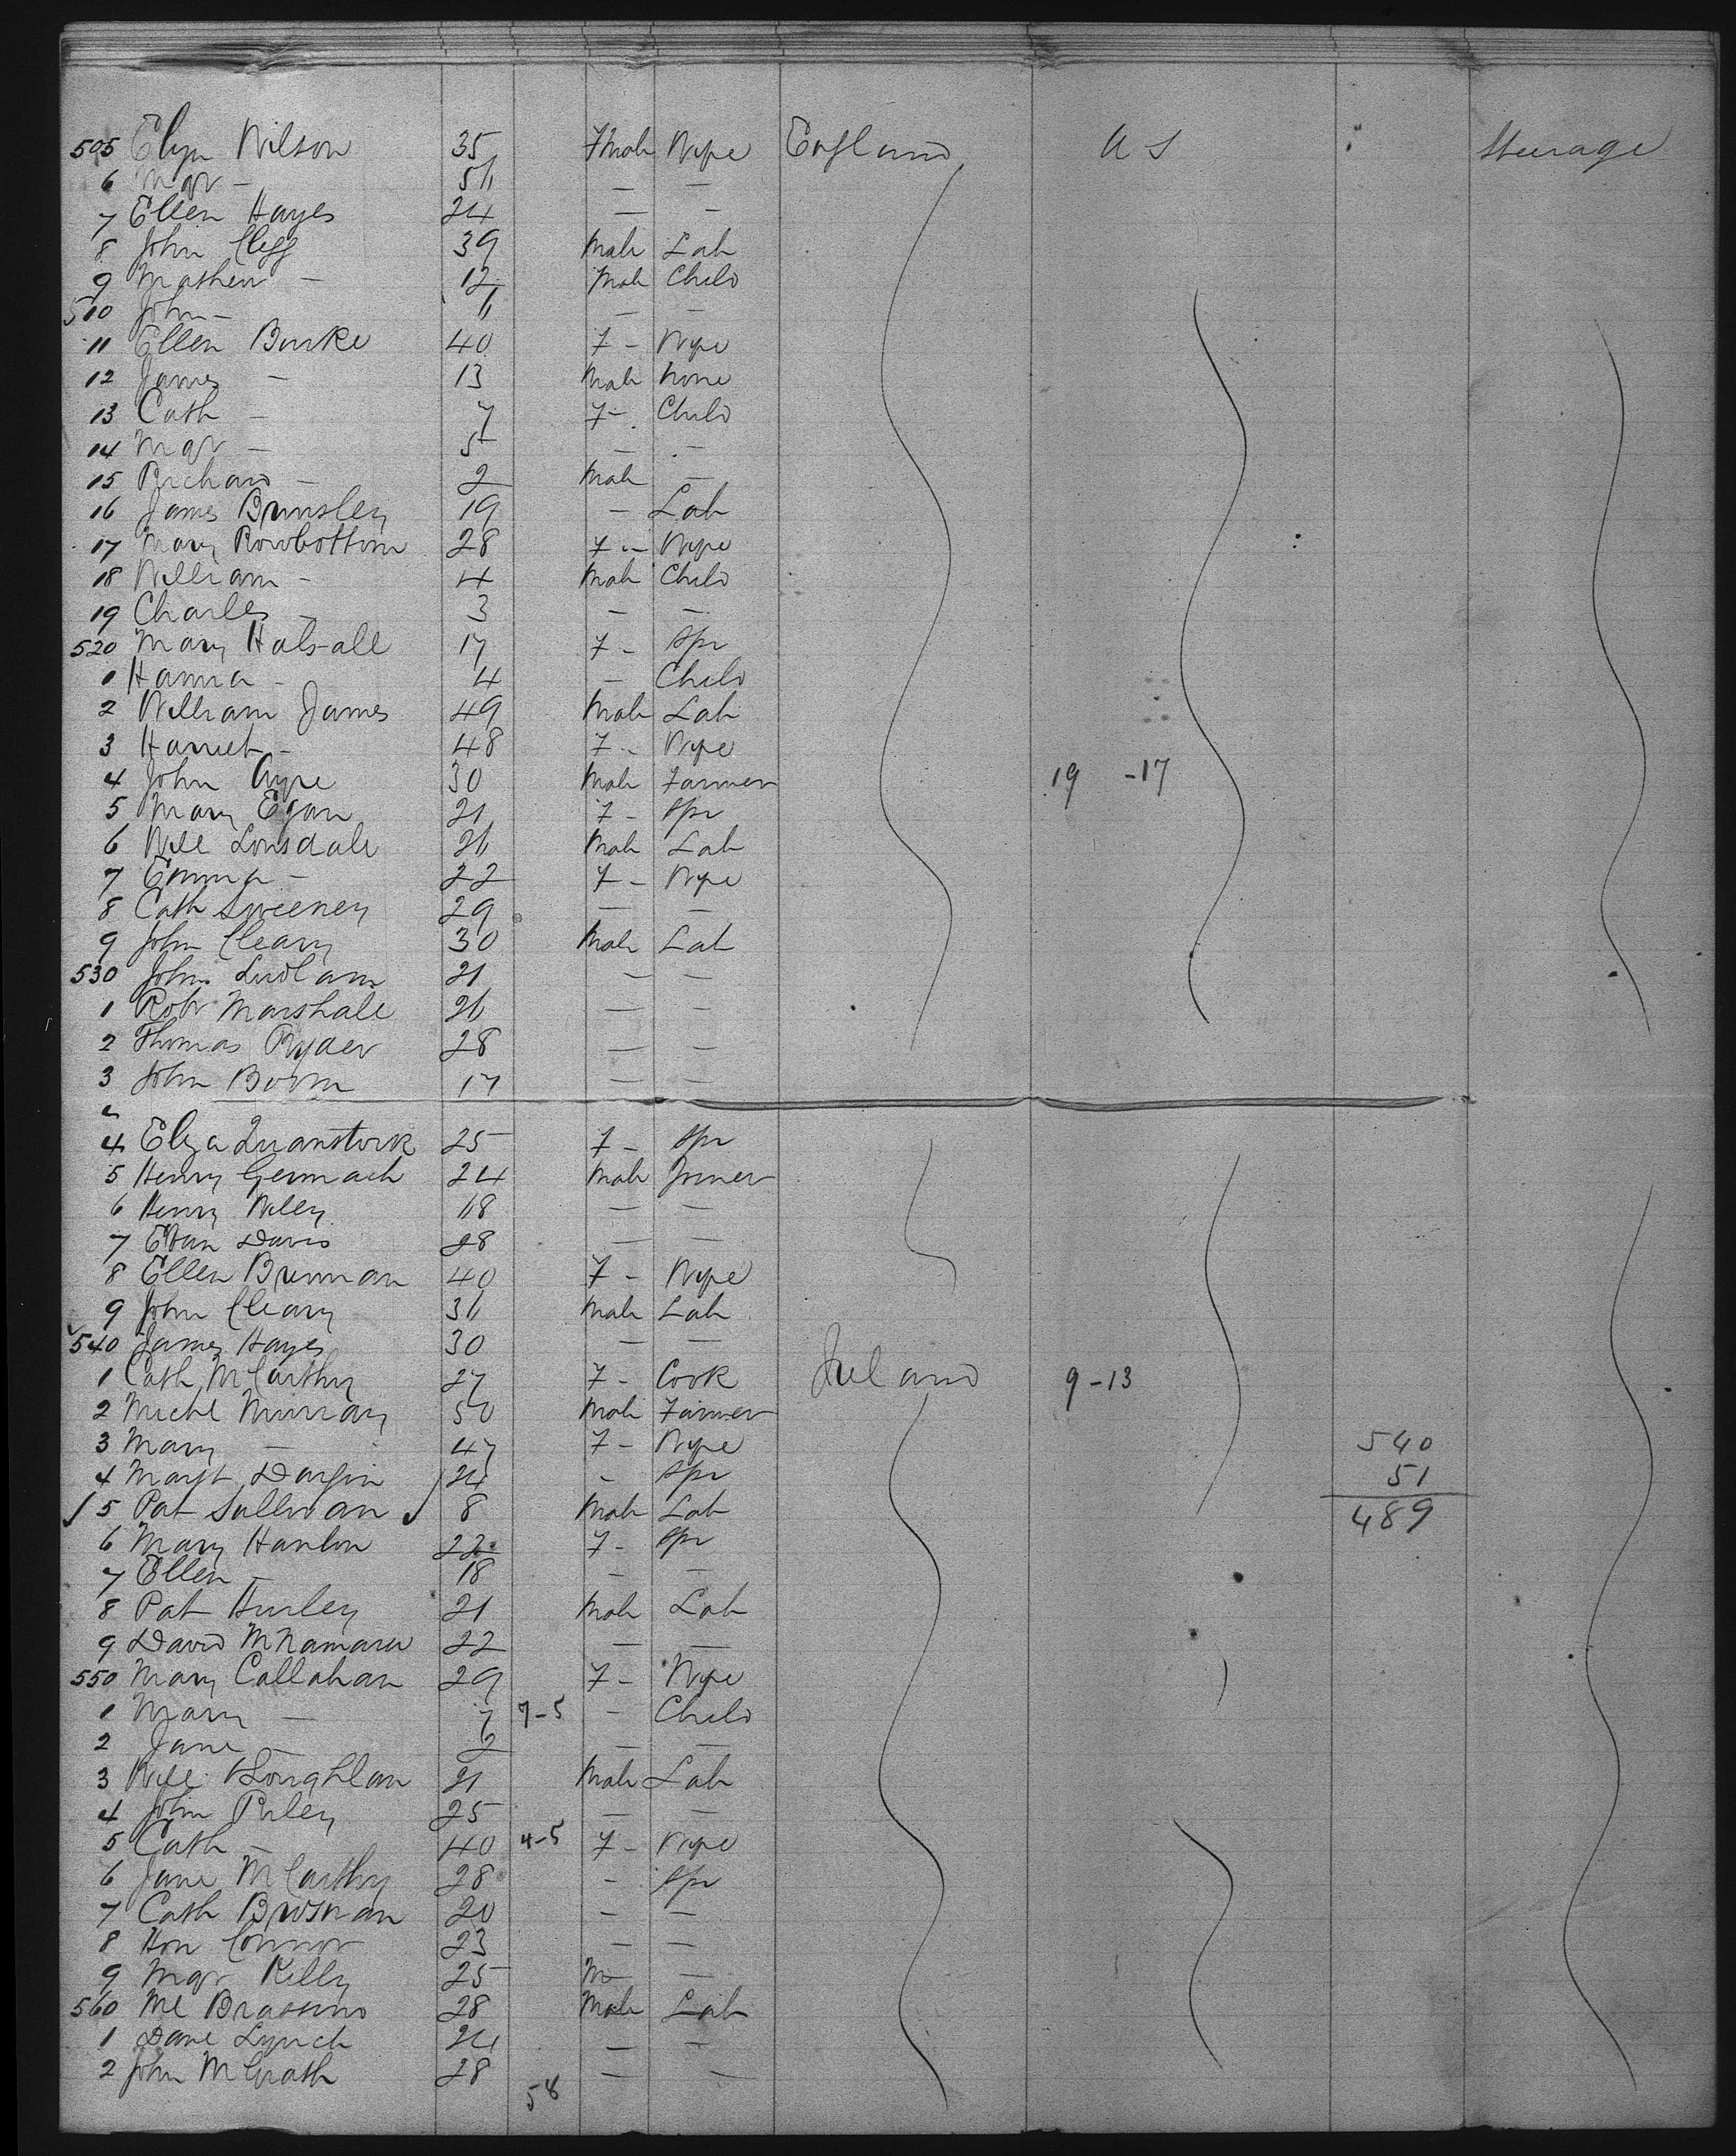 505 Elyn Wilson 35 Fmale Wife England U S Steerage
6 Mgr - 51 — —
7 Ellen Hayes 24 — —
8 John Clegg 39 Male Lab
9 Mathew - 12 Male Child
510 John - 11 — —
11 Ellen Burke 40 F - Wife
12 James - 13 Male None
13 Cath - 7 F - Child
14 Mgr - 5 — —
15 Richard - 2 Male —
16 James Brunsley 19 - Lab
17 Mary Rowbottom 28 F - Wife
18 William - 4 Male Child
19 Charles - 3 — —
520 Mary Halsall 17 F - Spr
1 Hanna - 4 - Child
2 William James 49 Male Lab
3 Harriet - 48 F - Wife
4 John Ayre 30 Male Farmer 19 -17
5 Mary Egan 21 F - Spr
6 Will Lonsdale 26 Male Lab
7 Emma - 22 F - Wife
8 Cath Sweeney 29 — —
9 John Cleary 30 Male Lab
530 John Ludlam 21 — —
1 Robr Marshall 26 — —
2 Thomas Ryder 28 — —
3 John Boom 17 — —
4 Eliza 25 F - Spr
5 Henry 24 Male Joiner
6 Henry Wiley 18 — —
7 Evan Davis 28 — —
8 Ellen Brennan 40 F - Wife
9 John Cleary 36 Male Lab
540 James Hayes 30 — —
1 Cath McCarthy 27 F - Cook Ireland 9-13
2 Michl Murray 50 Male Farmer
3 Mary - 47 F - Wife 540
4 Margt Dargin 24 - Spr 51
5 Pat Sullivan 8 Male Lab 489
6 Mary Hanlon 22 F - Spr
7 Ellen - 18 — —
8 Pat Hurley 21 Male Lab
9 David McNamara 22 — —
550 Mary Callahan 29 F - Wife
1 Mary - 7 7-5 - Child
2 Jane - 2 — —
3 Will 21 Male Lab
4 John Riley 25 — —
5 Cath - 40 4-5 F - Wife
6 Jane McCarthy 28 - Spr
7 Cath Brosnan 20 — —
8 Hon Connor 23 — —
9 Mgr Kelly 25 M —
560 Ml 28 Male Lab
1 Dane Lynch 24 — —
2 John McGrath 28 — —
58